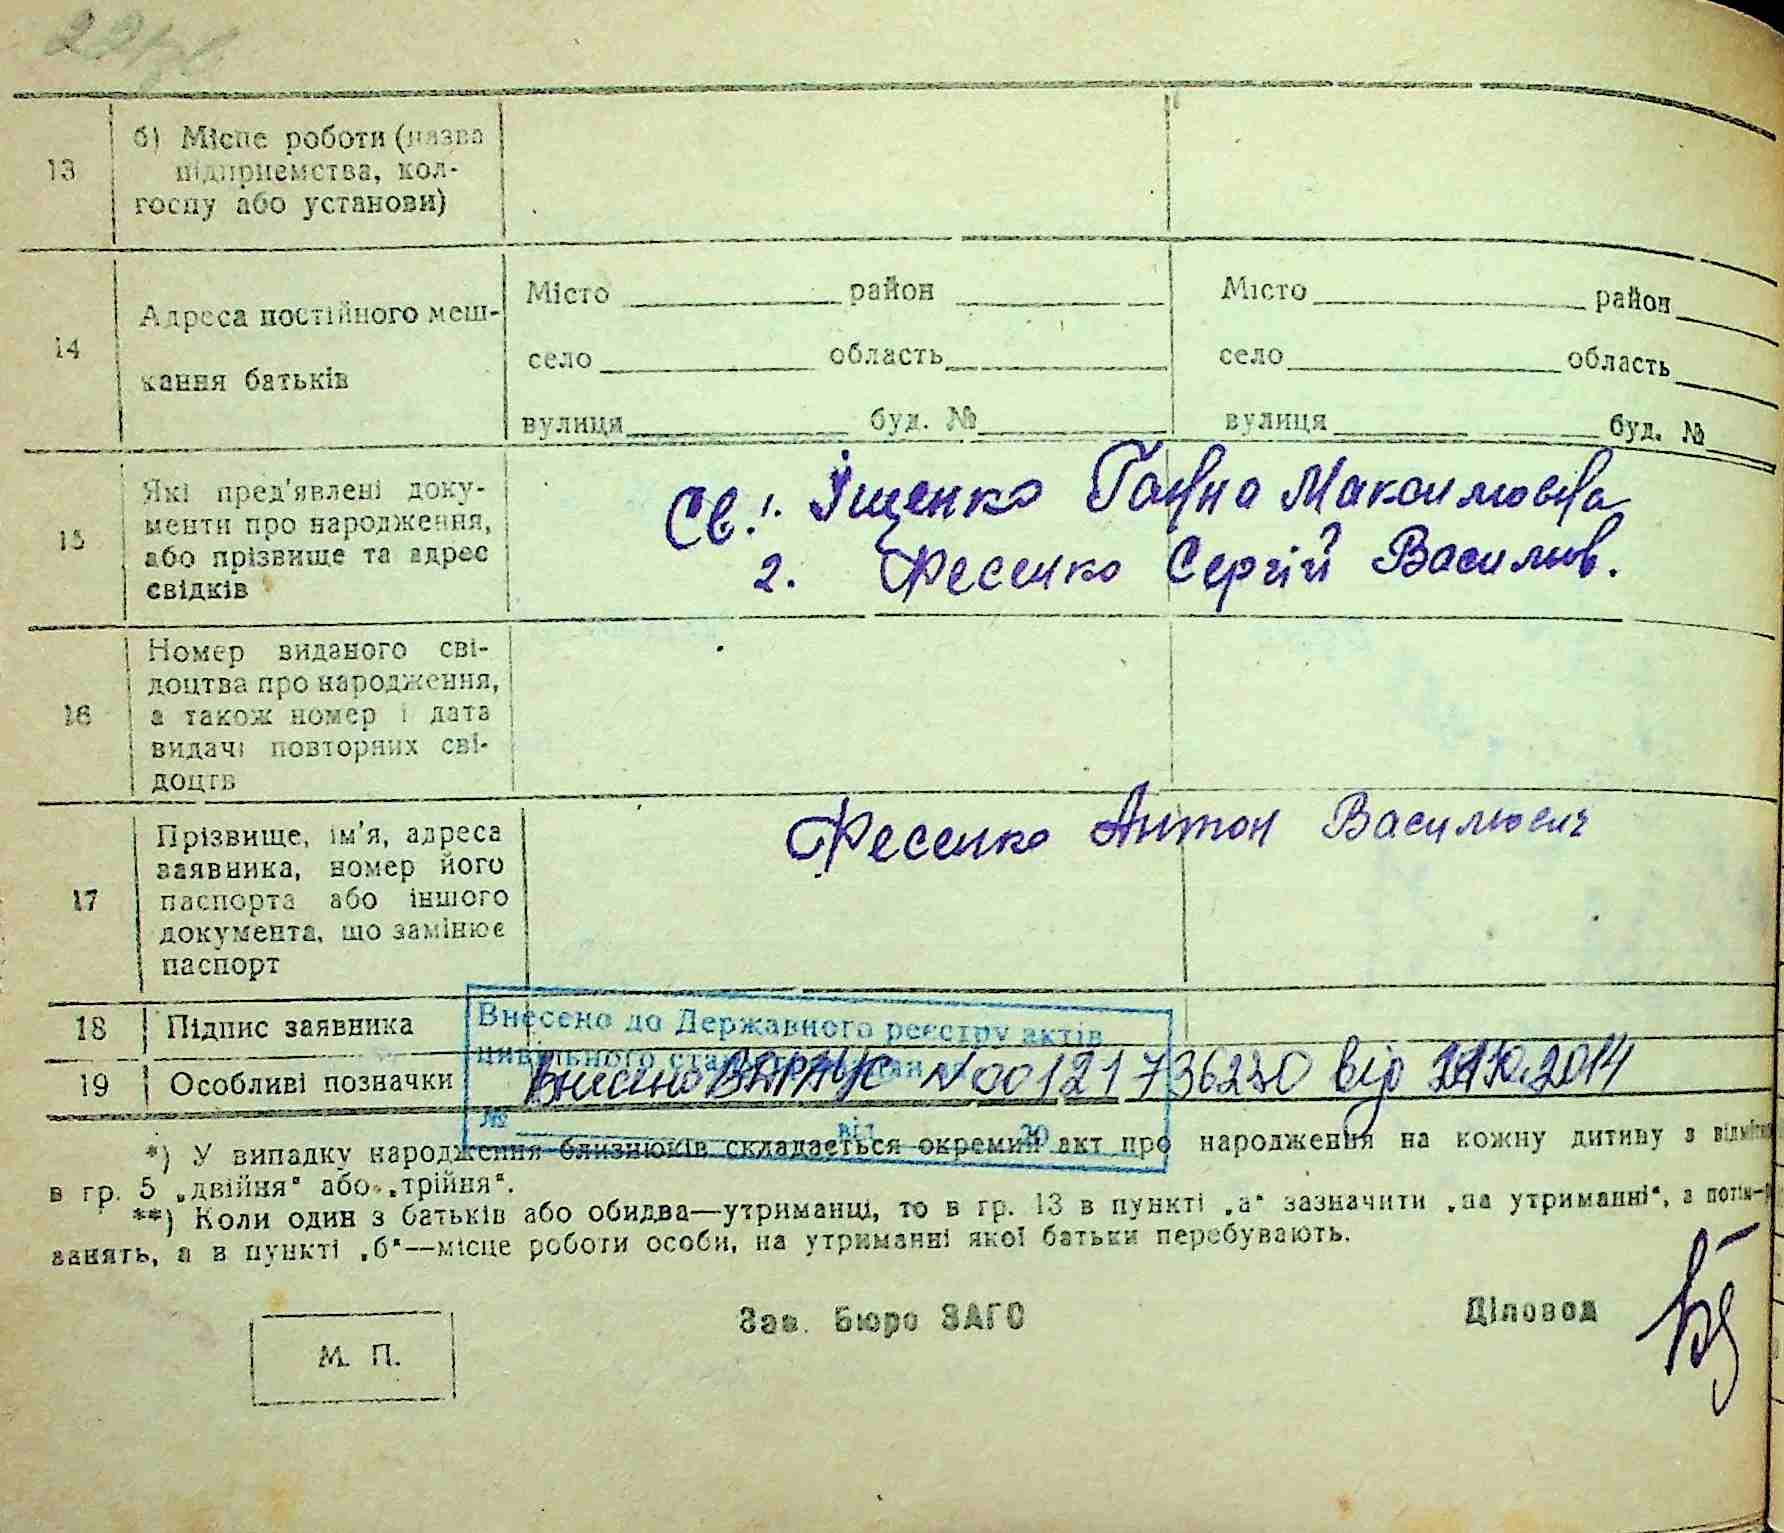 22
13
б) Місце роботи (назва
підприємства, кол-
госпу або установи)
14
Адреса постійного меш-
кання батьків
Місто район
село область
вулиця буд. №
Місто район
село область
вулиця буд. №
15
Які пред'явлені доку-
менти про народження,
або прізвище та адрес
свідків
Св. 1. Іщенко Ганна Максимовна
2. Фесенко Сергій Васильов.
16
Номер виданого сві-
доцтва про народження,
а також номер і дата
видачі повторних сві-
доцтв
17
Прізвище, ім'я, адреса
заявника, номер його
паспорта або іншого
документа, що замінює
паспорт
Фесенко Антон Васильович
18
Підпис заявника
19
Особливі позначки
Внесено до Державного реєстру актів
цивільного стану громадян
№ від 20
Внесено ВДРАЦС №00121736230 від 2014
*) У випадку народження близнюків складається окремий акт про народження на кожну дитину з
в гр. 5 „двійня“ або „трійня“.
**) Коли один з батьків або обидва—утриманці, то в гр. 13 в пункті „а“ зазначити „на утриманні“, а потім
занять, а в пункті „б“—місце роботи особи, на утриманні якої батьки перебувають.
М. П.
Зав. Бюро ЗАГС
Діловод